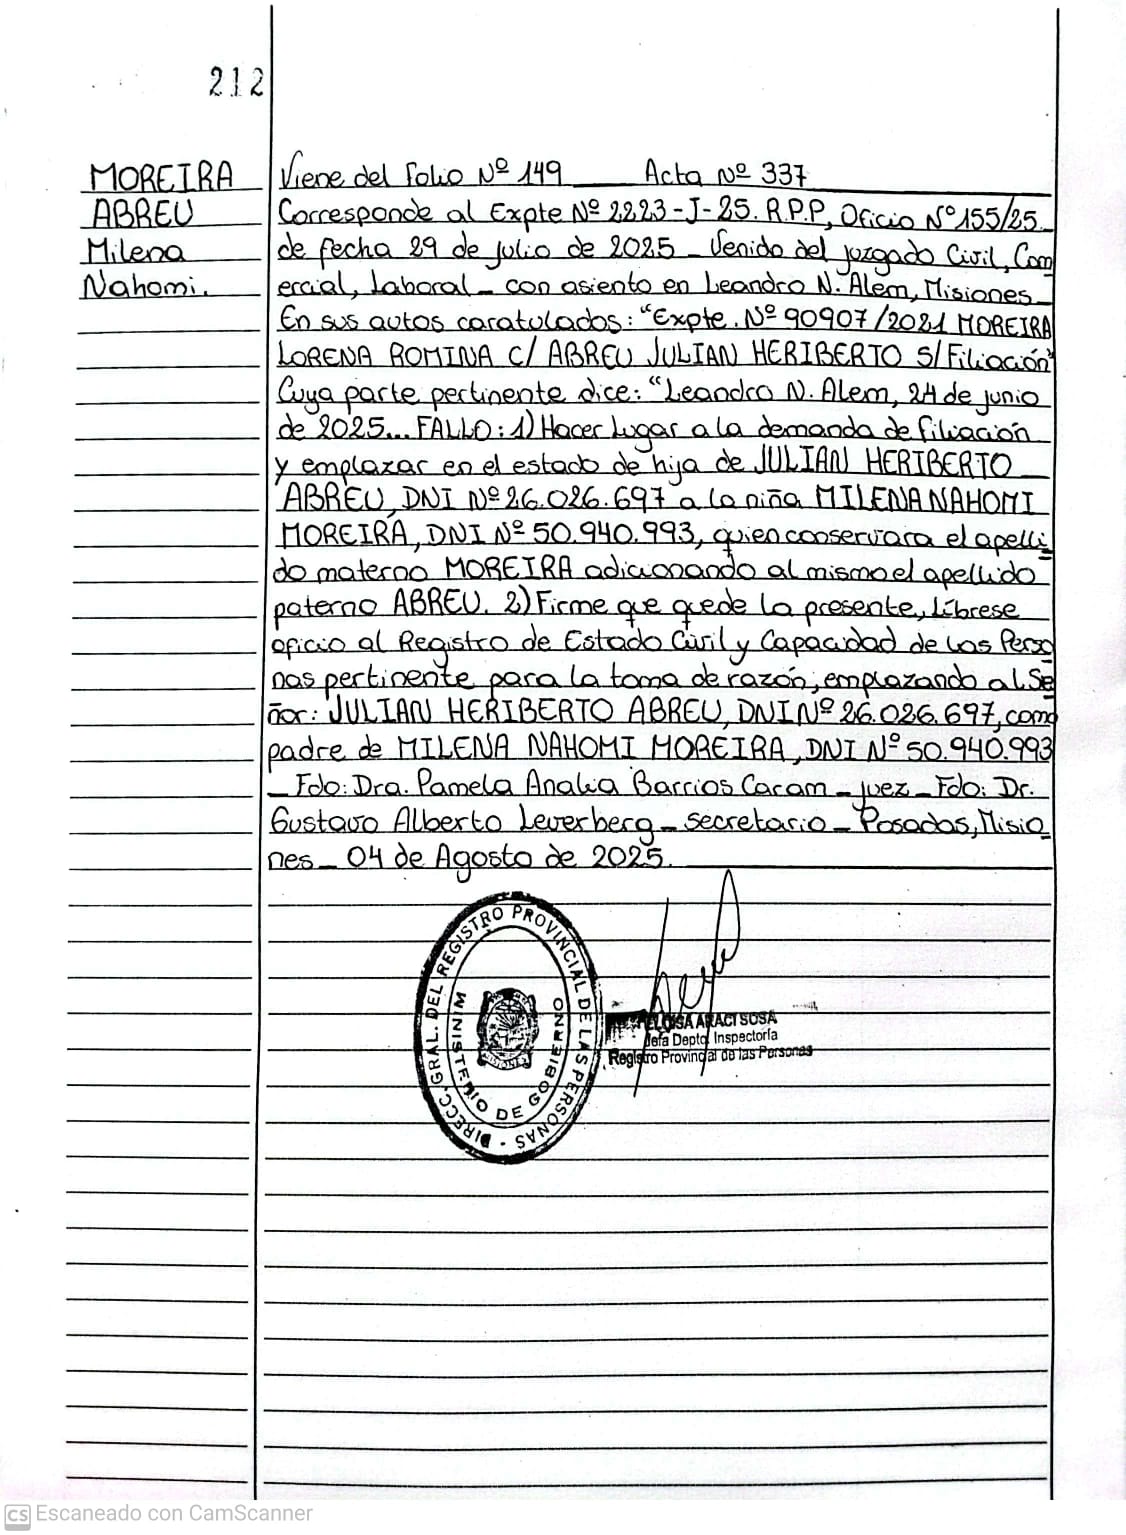 212
MOREIRA
ABREU
Milena
Nahomi.
Viene del Folio Nº 149 Acta Nº 337
Corresponde al Expte Nº 2223-J-25. R.P.P, Oficio Nº155/25
de fecha 29 de julio de 2025 _ Venido del juzgado Civil, Com
ercial, Laboral _ con asiento en Leandro N. Alem, Misiones
En sus autos caratulados: "Expte. Nº 90907/2021 MOREIRA
LORENA ROMINA C/ ABREU JULIAN HERIBERTO S/Filiación"
Cuya parte pertinente dice: "Leandro N. Alem, 24 de junio
de 2025... FALLO: 1) Hacer Lugar a la demanda de filiación
y emplazar en el estado de hija de JULIAN HERIBERTO
ABREU, DNI Nº 26.026.697 a la niña MILENA NAHOMI
MOREIRA, DNI Nº 50.940.993, quien conservara el apelli
do materno MOREIRA adicionando al mismo el apellido
paterno ABREU. 2) Firme que quede la presente, Líbrese
oficio al Registro de Estado Civil y Capacidad de las Perso
nas pertinente para la toma de razón, emplazando al Se
ñor: JULIAN HERIBERTO ABREU, DNI Nº 26.026.697, como
padre de MILENA NAHOMI MOREIRA, DNI Nº 50.940.993
_ Fdo: Dra. Pamela Analia Barrios Caram _ juez _ Fdo: Dr.
Gustavo Alberto Leverberg _ secretario _ Posadas, Misio
nes _ 04 de Agosto de 2025.
DIRECC. GRAL. DEL REGISTRO PROVINCIAL DE LAS PERSONAS -
MINISTERIO DE GOBIERNO
MISIONES
ELOISA ARACI SOSA
Jefa Depto. Inspectoría
Registro Provincial de las Personas
CS Escaneado con CamScanner